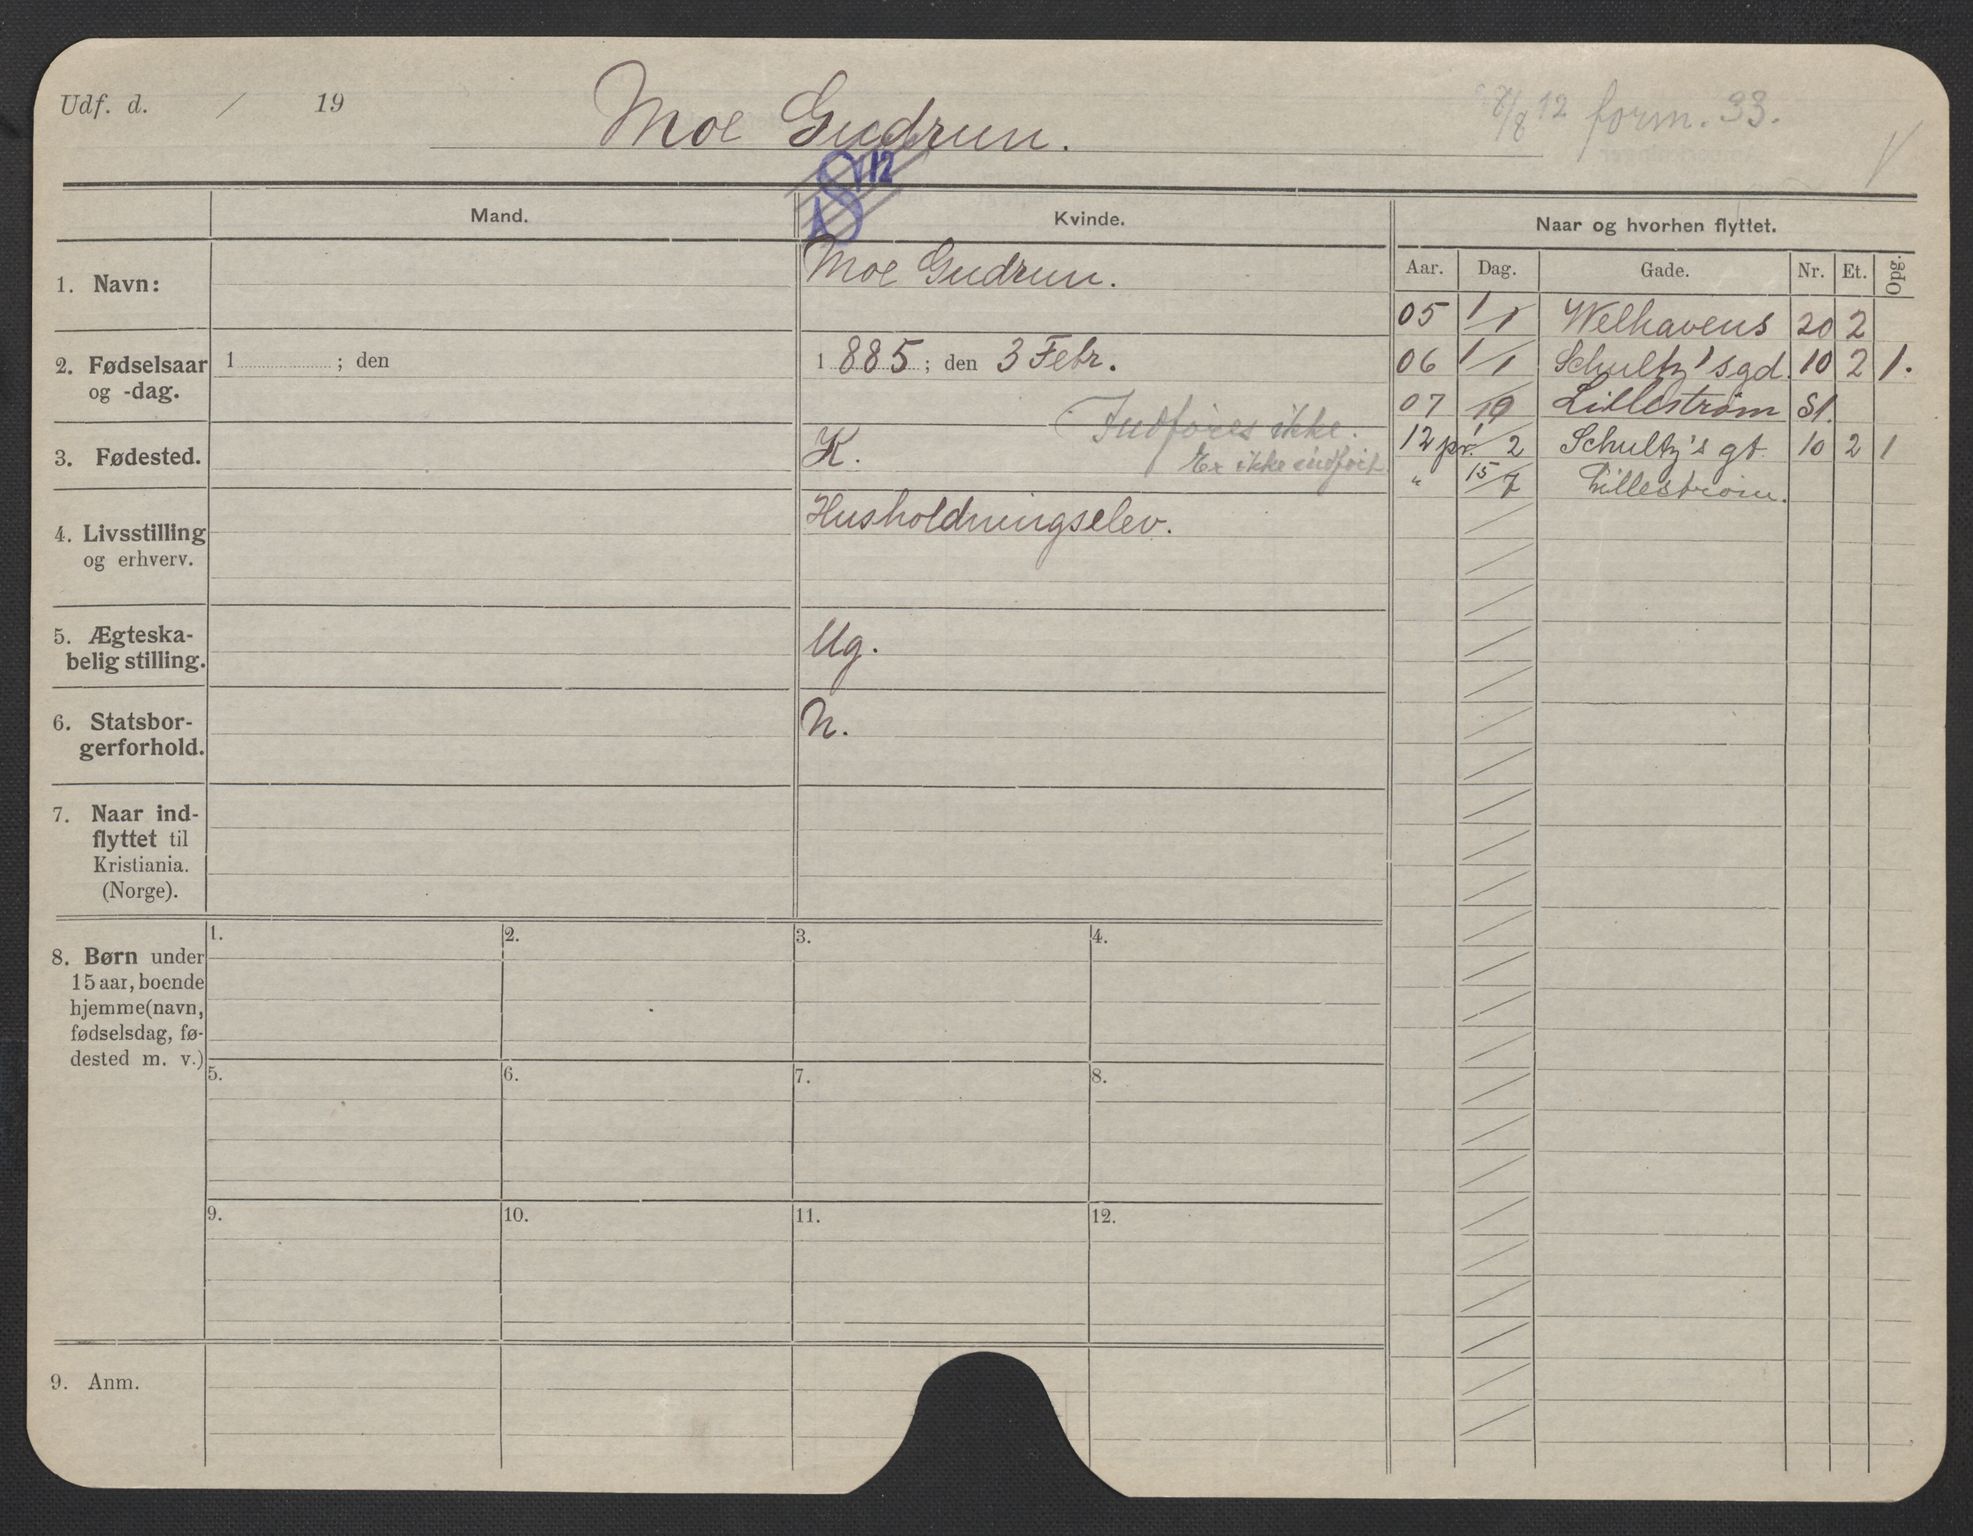 Udf. d. / 19
Moe Gudrun.
8/8 12 form. 33.
12
Mand.
Kvinde.
Naar og hvorhen flyttet.
Aar. Dag. Gade. Nr. Et. Opg.
1. Navn:
Moe Gudrun.
05 1/1 Welhavens 20 2
2. Fødselsaar
og -dag.
1 ; den
1 885; den 3 Febr.
06 1/1 Schultz'sgd. 10 2 1.
07 /9 Lilleström St.
3. Fødested.
K.
Indføres ikke.
Er ikke indført
12 pr. 1/2 Schultz's gt. 10 2 1
" 15/7 Lillestrøm.
4. Livsstilling
og erhverv.
Husholdningselev.
5. Ægteska-
belig stilling.
Ug.
6. Statsbor-
gerforhold.
N.
7. Naar ind-
flyttet til
Kristiania.
(Norge).
8. Børn under
15 aar, boende
hjemme (navn,
fødselsdag, fø-
dested m. v.)
1. 2. 3. 4.
5. 6. 7. 8.
9. 10. 11. 12.
9. Anm.